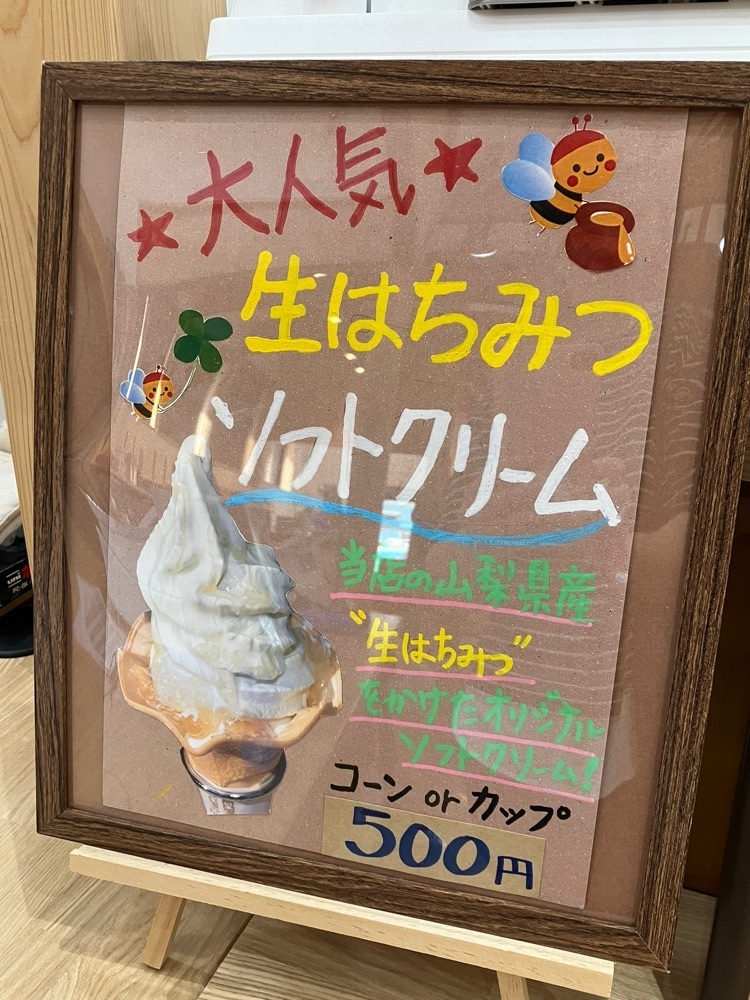 ★大人気★
生はちみつ
ソフトクリーム
当店の山梨県産
"生はちみつ"
をかけたオリジナル
ソフトクリーム!
コーン or カップ
500円
uni